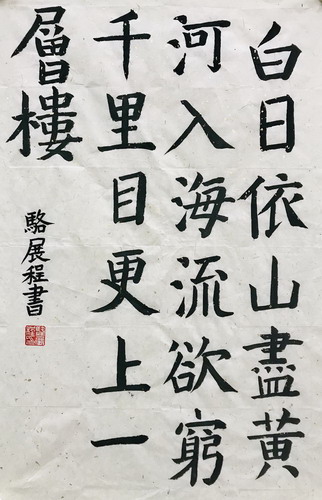 白日依山盡黃
河入海流欲窮
千里目更上一
層樓
駱展程書